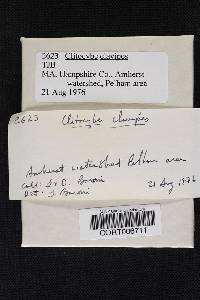 2623 Clitocybe clavipes
TJB
MA, Hampshire Co., Amherst
watershed, Pelham area
21 Aug 1976
2623 Clitocybe clavipes
Amherst watershed Pelham area
21 Aug 1976
Coll:
Det:
CORT008711